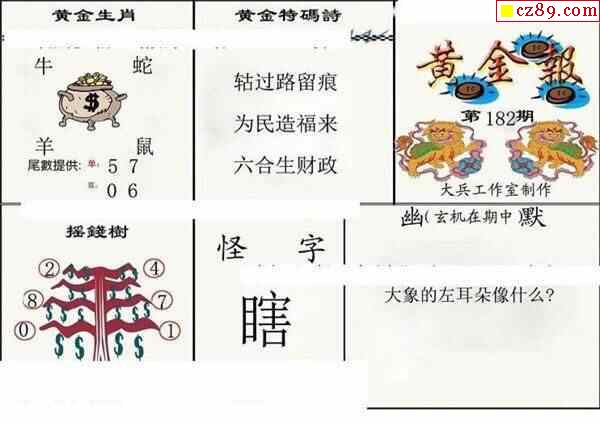 cz89.com
黄金生肖
牛 蛇
$
羊 鼠
尾數提供: 单: 5 7
双: 0 6
黄金特碼詩
轱过路留痕
为民造福来
六合生财政
黄金報
第182期
大兵工作室制作
摇錢樹
2 4
8 7
0 1
怪 字
瞎
幽(玄机在期中)默
大象的左耳朵像什么?